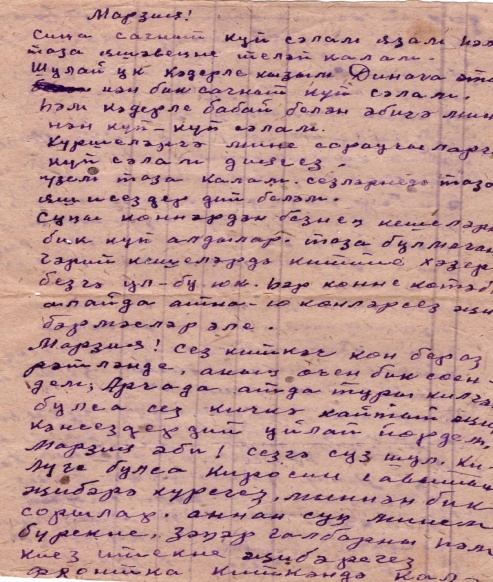 Марзия!
Сица сагнып күп сәлам язам һәм
таза яшәвецне теләп калам.
Шулай ук кәдерле кызым Динага әт
нән бик сагнып күп сәлам.
һәм кәдерле бабай белән әбигә мин
нән күп-күп сәлам.
Күршеләргә мине сораучыларга
күп сәлам диягез.
үзем таза калам. сезләрнедә таза
яшисездер дип беләм.
Суцгы көннәрдән безнец кешеләр
бик күп алдылар. таза булмаган
кешеләрдә китте хәзер
безгә ул-бу юк. һәр көнне көтәб
алайда атна-ю көнләрсез
бәрмәсләр әле.
Марзия! сез киткәч көн бераз
рәтләнде, аның өчен бик сөен-
дем, Арчада атда туры килгән
булса сез кичкә кайтып
кәнсездер дип уйлай йөрдем,
Марзия әби! сезгә сүз шул,
булса киросин
җибәрә күрегез, миннән бик
сорыйлар. аннан суц минем
бүрекне, зәцгәр галбарны һәм
киез итекне җибәрегез
фронтка киткәндә